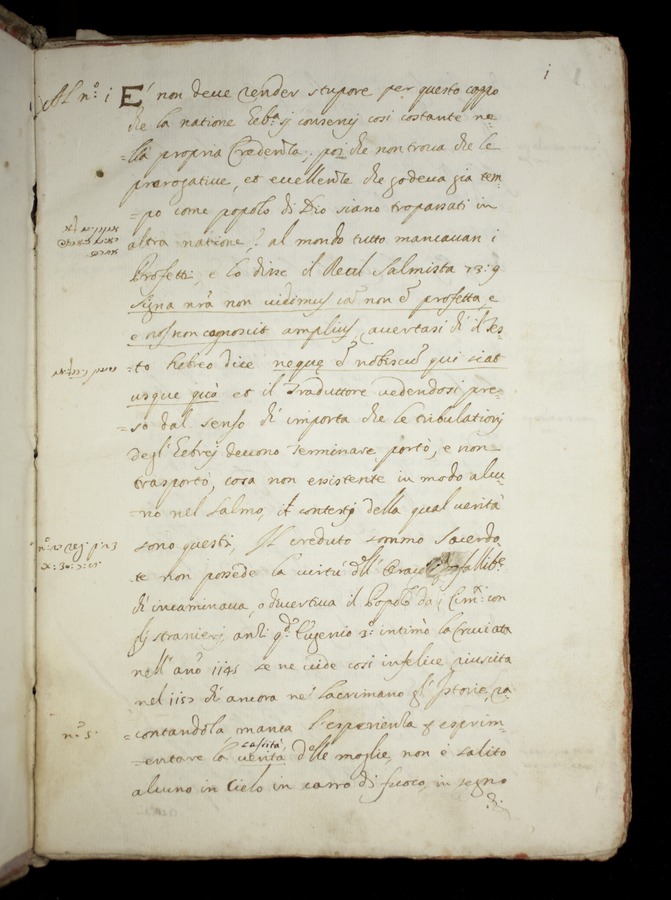 i
Al n.o i E' non deue render stupore per questo capo
che la natione Eebrj conseruj così costante ne-
lla propria Credenza, poi che non troua che le
prerogatiue, et eccellenze che godeua già tem-
po come popolo di Dio siano trapassati in
altra natione? al mondo tutto mancauan i
Profetti, e lo disse il Real Salmista 73:9
signa nra non uidimus ia non e profetta, e
e nos non cognoscit amplius, auertasi di il Tes-
to hebreo dice neque e nobiscu qui ciat
usque quò et il Traduttore uedendosi pre-
so dal senso di importa che le tribulationj
degl' Eebrej deuono terminare, portò, e non
trasportò, cosa non essistente in modo alcu-
no nel Salmo, it contestj della qual uerità
sono questi, Il creduto sommo Sacerdo-
te non possede la uirtù dell' Oracolo infallibe
di incaminaua, o diuertiua il Popolo da i Cim. con
gli stranierj, anzi qdo Eugenio 3o intimò la Cruciata
nell' ano 1145 se ne uide così infelice riuscita
nel 1157 di ancora ne lacrimano gl' Istorie, ra-
n.o 5. contandola manca l'esperienza p esprim-
castità
entare la uerità delle moglie, non è salito
alcuno in Cielo in carro di fuoco, in segno
di